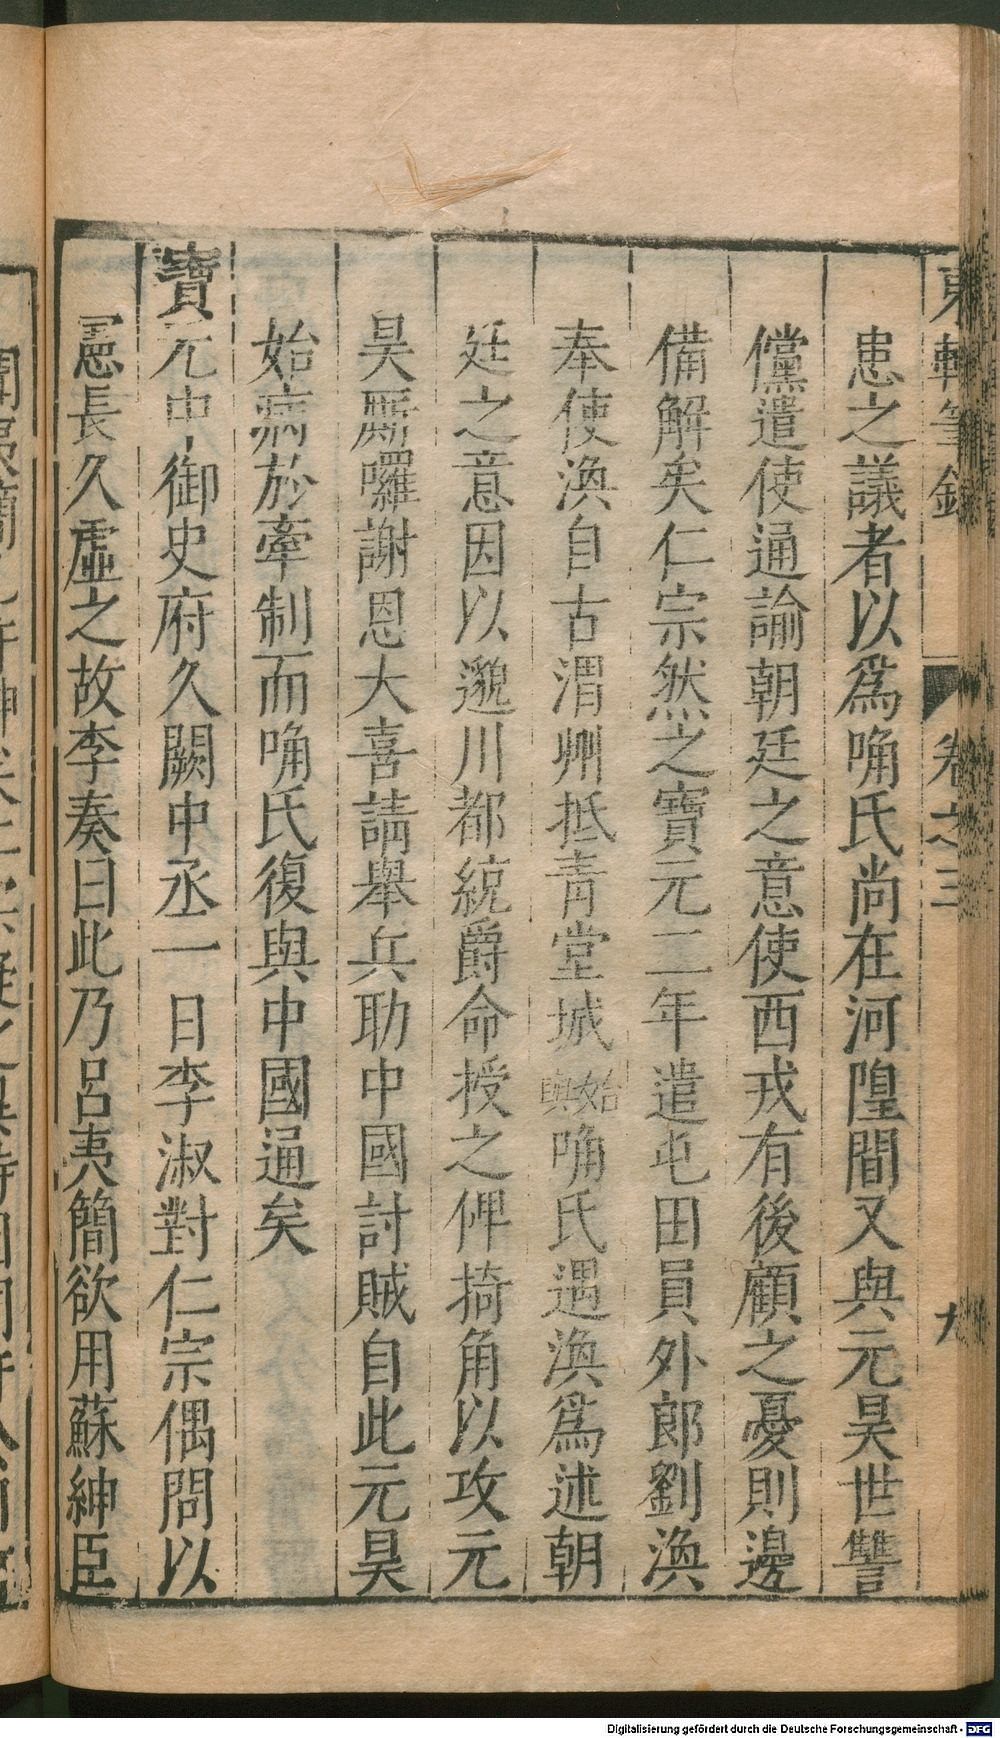 東軒筆錄
卷之三
九
患之議者以爲唃氏尚在河隍間又與元昊世讐
儻遣使通諭朝廷之意使西戎有後顧之憂則邊
備解矣仁宗然之寶元二年遣屯田員外郎劉渙
奉使渙自古渭州抵靑堂城始與唃氏遇渙爲述朝
廷之意因以邈川都統爵命授之俾掎角以攻元
昊厮囉謝恩大喜請舉兵助中國討賊自此元昊
始病於牽制而唃氏復與中國通矣
寶元中御史府久闕中丞一日李淑對仁宗偶問以
憲長久虛之故李奏曰此乃呂夷簡欲用蘇紳臣
Digitalisierung gefördert durch die Deutsche Forschungsgemeinschaft - DFG